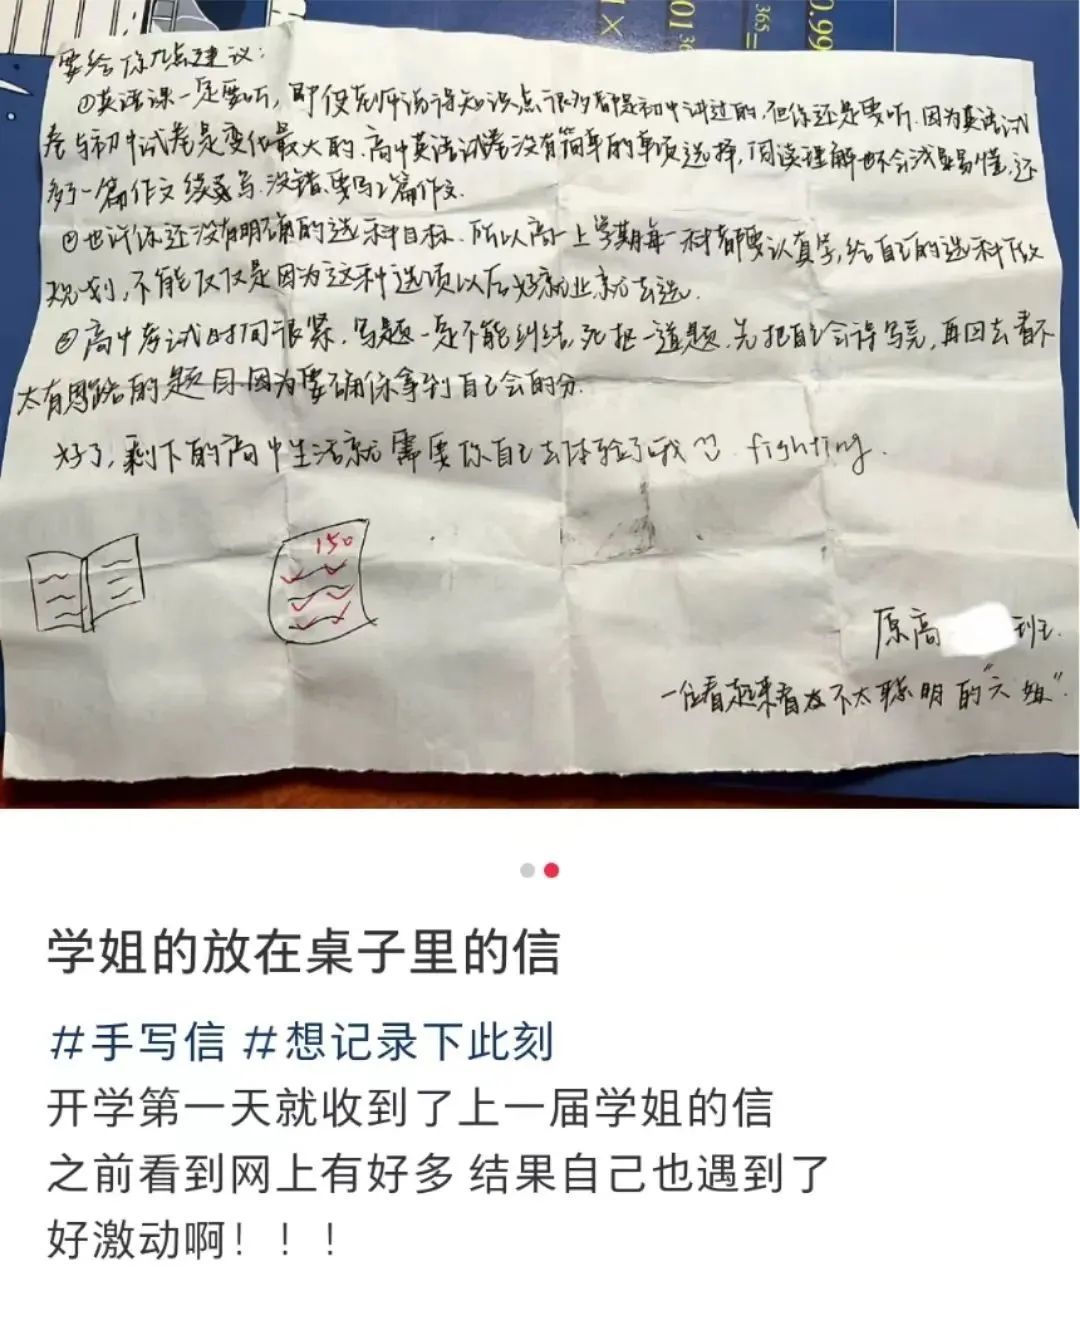 0.99
365=
01
要给你几点建议：
①英语课一定要听，即使老师讲得知识点很多都是初中讲过的，但你还是要听.因为英语试
卷与初中试卷是变化最大的.高中英语试卷没有简单的单项选择，阅读理解也不会浅显易懂，还
多了一篇作文续写.没错.要写2篇作文.
②也许你还没有明确的选科目标.所以高一上学期每一科都要认真学，给自己的选科做
规划，不能仅仅是因为这种选项以后好就业就去选.
③高中考试时间很紧，写题一定不能纠结，死抠一道题，先把自己会得写完，再回去看不
太有思路的题目.因为要确保拿到自己会的分.
好了，剩下的高中生活就需要你自己去体验了哦 fighting.
150
原高 班.
一位看起来不太聪明的“六姐”.
学姐的放在桌子里的信
#手写信 #想记录下此刻
开学第一天就收到了上一届学姐的信
之前看到网上有好多 结果自己也遇到了
好激动啊！！！